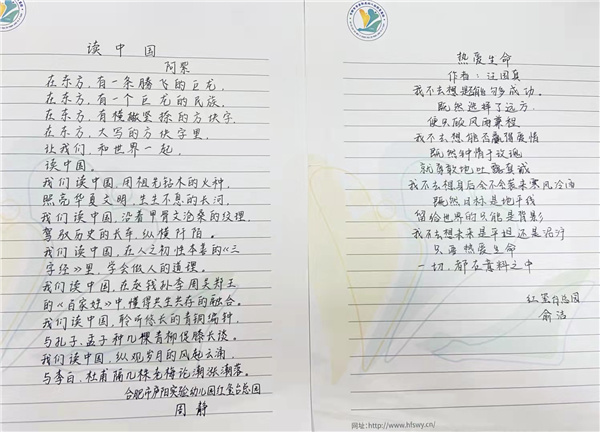 读中国
阿紫
在东方,有一条腾飞的巨龙,
在东方,有一个巨龙的民族,
在东方,有横撇竖捺的方块字,
在东方,大写的方块字里,
让我们,和世界一起,
读中国。
我们读中国,用祖先钻木的火种,
照亮华夏文明,生生不息的长河,
我们读中国,沿着甲骨文沧桑的纹理,
驾驭历史的长车,纵横阡陌。
我们读中国,在人之初性本善的《三
字经》里,学会做人的道理。
我们读中国,在赵钱孙李周吴郑王
的《百家姓》中,懂得共生共存的融合。
我们读中国,聆听悠长的青铜编钟,
与孔子、孟子种几棵青柳促膝长谈。
我们读中国,纵观岁月的风起云涌,
与李白、杜甫隔几棵老梅论潮涨潮落。
合肥市庐阳实验幼儿园红玺台总园
周静
热爱生命
作者:汪国真
我不去想是否能够成功
既然选择了远方
便只顾风雨兼程
我不去想能否赢得爱情
既然钟情于玫瑰
就勇敢地吐露真诚
我不去想身后会不会袭来寒风冷雨
既然目标是地平线
留给世界的只能是背影
我不去想未来是平坦还是泥泞
只要热爱生命
一切,都在意料之中
红玺台总园
俞洁
网址:http://www.hfswy.cn/